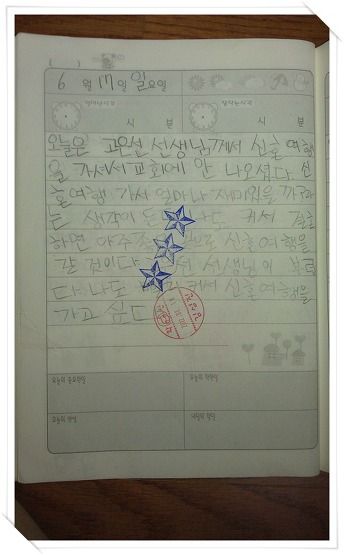 6 월 17 일 일요일
일어난시각 잠자는시각
시 분 시 분
오늘은 고은선 선생님께서 신혼 여행
을 가셔서 교회에 안 나오셨다. 신
혼여행 가서 얼마나 재미있을까?라
는 생각이 든 나도 커서 결혼
하면 아주 으로 신혼여행을
갈 것이다 선 선생님이
다. 나도 커서 신혼여행을
가고 싶다
오늘의 중요한일 오늘의 착한일
오늘의 반성 내일의 할일